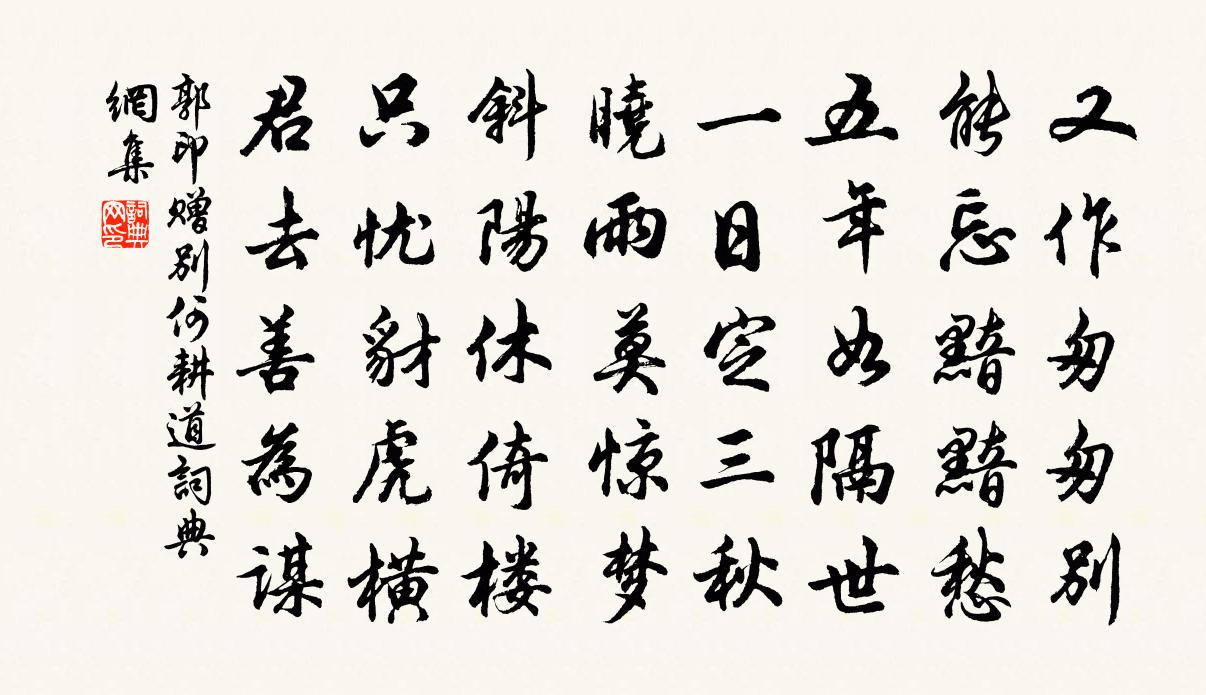 又作匆匆別
能忘黯黯愁
五年如隔世
一日定三秋
曉雨莫惊梦
斜陽休倚楼
只忧豺虎横
君去善為谋
郭印赠別何耕道詞典
網集
詞典
网印